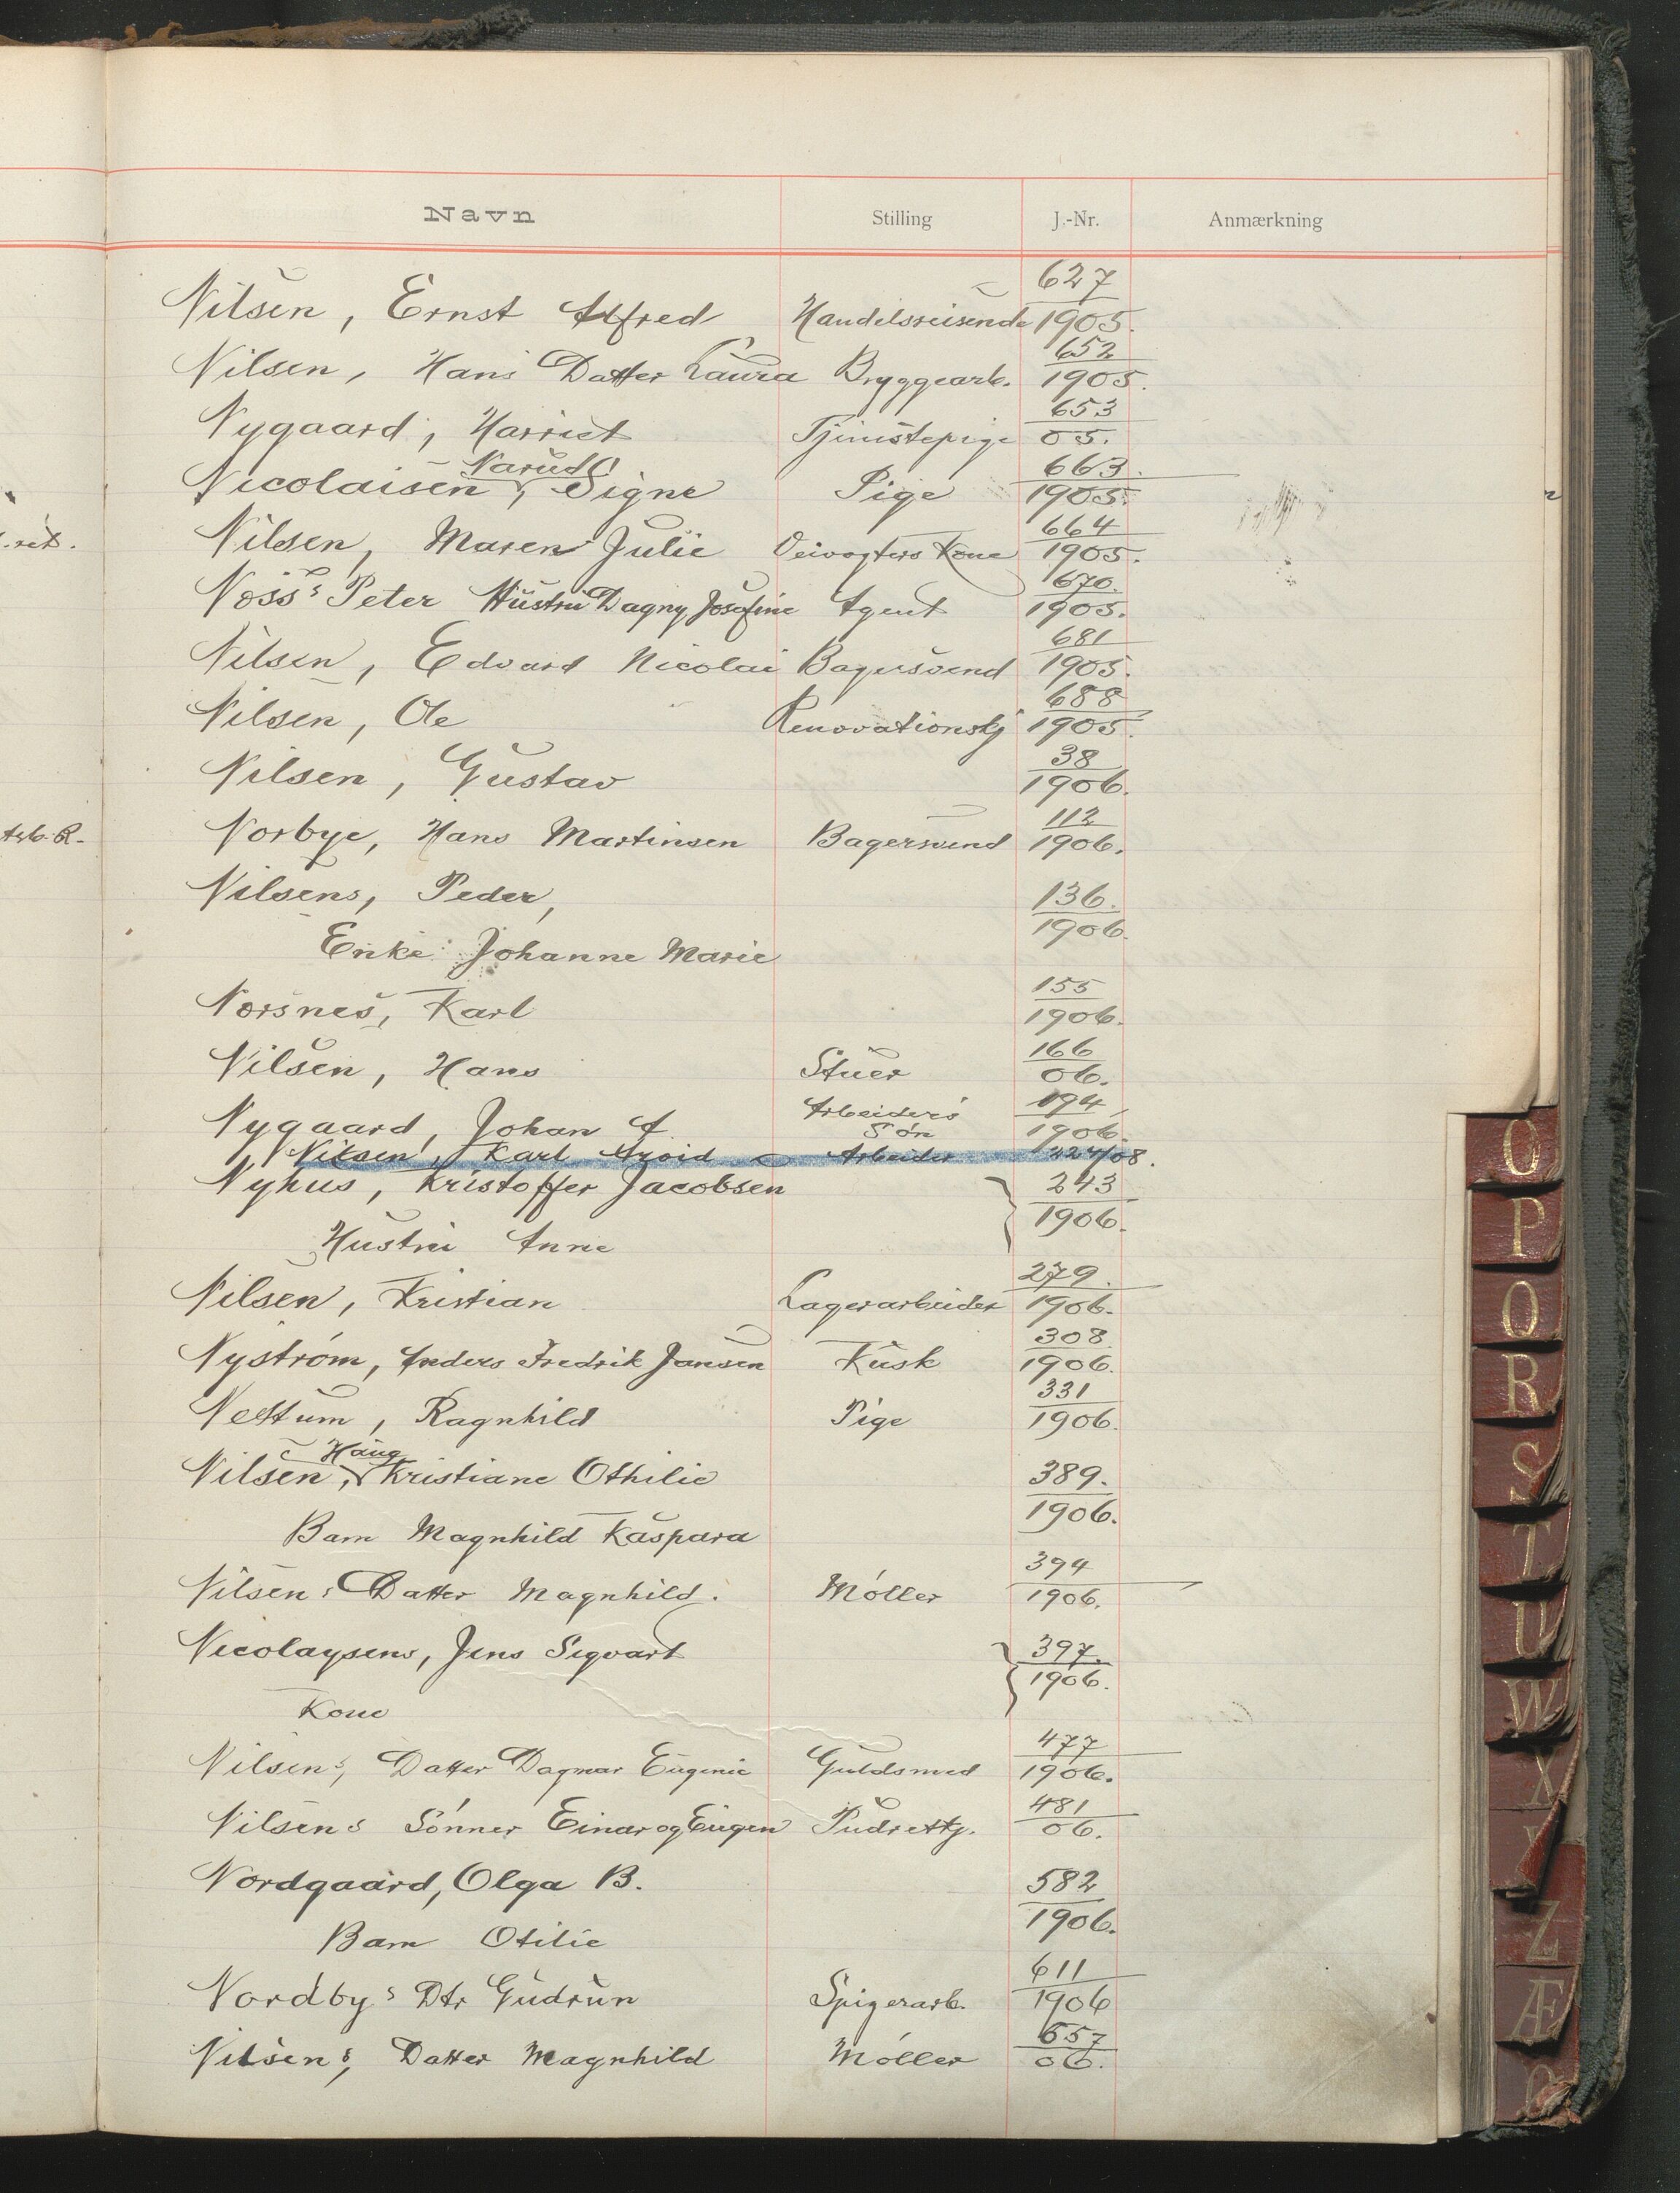 Navn Stilling J.-Nr. Anmærkning
Nilsen, Ernst Alfred Handelsreisende 627/1905.
Nilsen, Hans Datter Laura Bryggearb. 652/1905.
Nygaard, Harriet Tjenestepige 653/05.
Narud
Nicolaisen, Signe Pige 663/1905.
Nilsen, Maren Julie Kone 664/1905.
Noss's Peter Hustru Dagny Josefine Agent 670/1905.
Nilsen, Edvard Nicolai Bagersvend 681/1905.
Nilsen, Ole Renovationskj 688/1905.
Nilsen, Gustav 38/1906.
Norbye, Hans Martinsen Bagersvend 112/1906.
Nilsens, Peder, 136/1906.
Enke Johanne Marie
Norsnes, Karl 155/1906.
Nilsen, Hans Stuer 166/06.
Nygaard, Johan A Arbeider's Søn 194/1906.
Nilsen, Karl Arvid Arbeider 224/08.
Nyhus, Kristoffer Jacobsen 243/1906.
Hustru Anne
Nilsen, Kristian Lagerarbeider 279/1906.
Nystrøm, Anders Fredrik Jansen Kusk 308/1906.
Nettum, Ragnhild Pige 331/1906.
Haug
Nilsen, Kristiane Othilie 389/1906.
Barn Magnhild Kaspara
Nilsen's Datter Magnhild. Møller 394/1906.
Nicolaysens, Jens Sigvart 397/1906.
Kone
Nilsen's, Datter Dagmar Eugenie Guldsmed 477/1906.
Nilsens Sønner Einar og Eugen Pudrettg. 481/06.
Nordgaard, Olga B. 582/1906.
Barn Otilie
Nordby's Dtr Gudrun Spigerarb. 611/1906
Nilsen's, Datter Magnhild Møller 657/06.
O
P
Q
R
S
T
U
W
X
Z
Æ
Ø